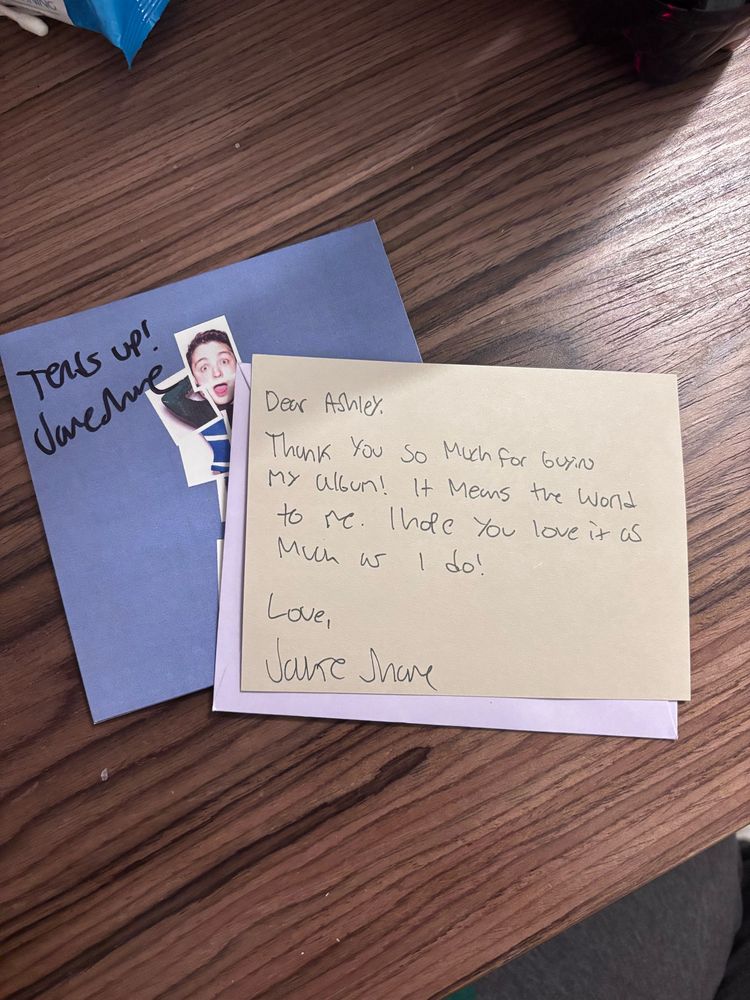 NING
Tens up!
Jake Shane
Dear Ashley,
Thank you so much for buying
my album! It means the world
to me. I hope you love it as
much as I do!
Love,
Jake Shane